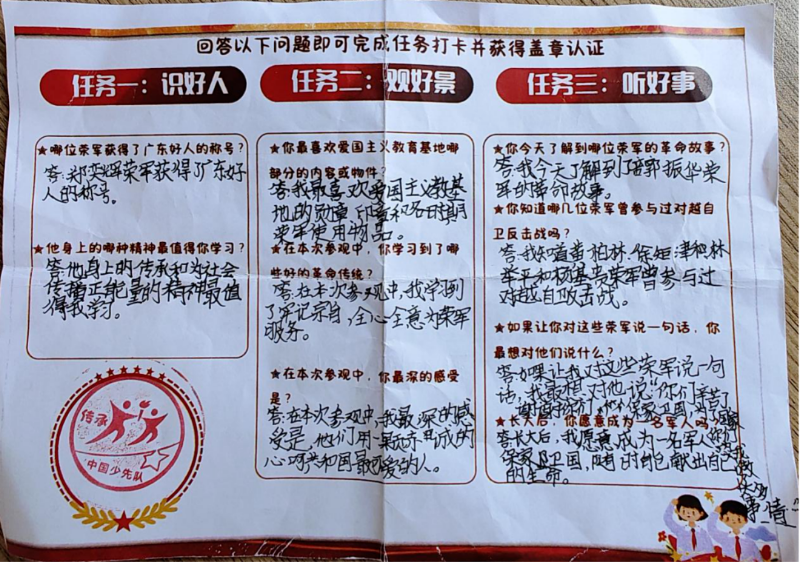 回答以下问题即可完成任务打卡并获得盖章认证
任务一：识好人
★哪位荣军获得了广东好人的称号？
答:郑奕辉荣军获得了广东好
人的称号。
★他身上的哪种精神最值得你学习？
答:他身上的传承和为社会
传播正能量的精神最值
得我学习。
传承
中国少先队
任务二：观好景
★你最喜欢爱国主义教育基地哪
部分的内容或物件？
答:我最喜欢爱国主义教基
地的勋章、印章和各时期
荣军使用物品。
★在本次参观中，你学习到了哪
些好的革命传统？
答:在本次参观中,我学到
了牢记宗旨,全心全意为荣军
服务。
★在本次参观中，你最深的感受
是？
答:在本次参观中,我最深的感
受是,他们用一颗赤诚的
心呵共和国最可爱的人。
任务三：听好事
★你今天了解到哪位荣军的革命故事？
答:我今天了解到了郭振华荣
军的革命故事。
★你知道哪几位荣军曾参与过对越自
卫反击战吗？
答:我知道黄柏林、徐短津
举平和杨基贵荣军曾参与过
对越自攻击战。
★如果让你对这些荣军说一句话，你
最想对他们说什么？
答:如果让我对这些荣军说一句
话,我最想对他说“你们辛苦了
谢谢你们保家卫国,
★长大后，你愿意成为一名军人吗？
答:长大后,我愿意成为一名军人
保家卫国,随时刻已献出自己
的生命。
事情